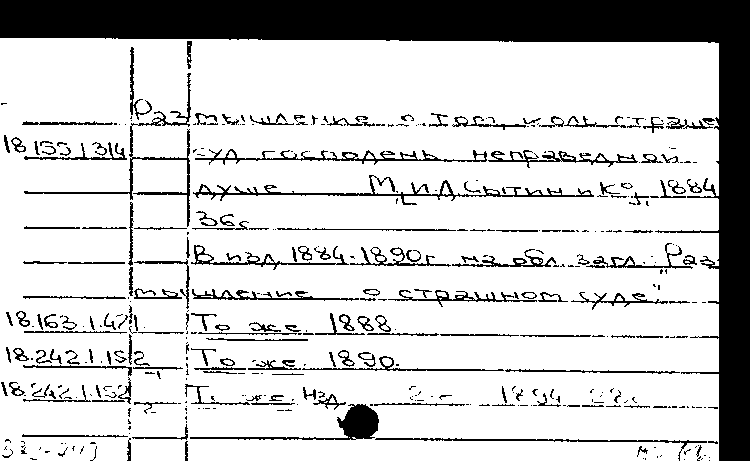 Размышление о том, коль страшен
18.155.1.314 суд господень неправедной
душе. М., И.Д. Сытин и К°, 1884
36с
В изд. 1884-1890г на обл. загл.: „Раз-
мышление о страшном суде“.
18.163.1.471 То же 1888
18.242.1.152-1 То же. 1890.
18.242.1.152-2 То же. Изд. 1894